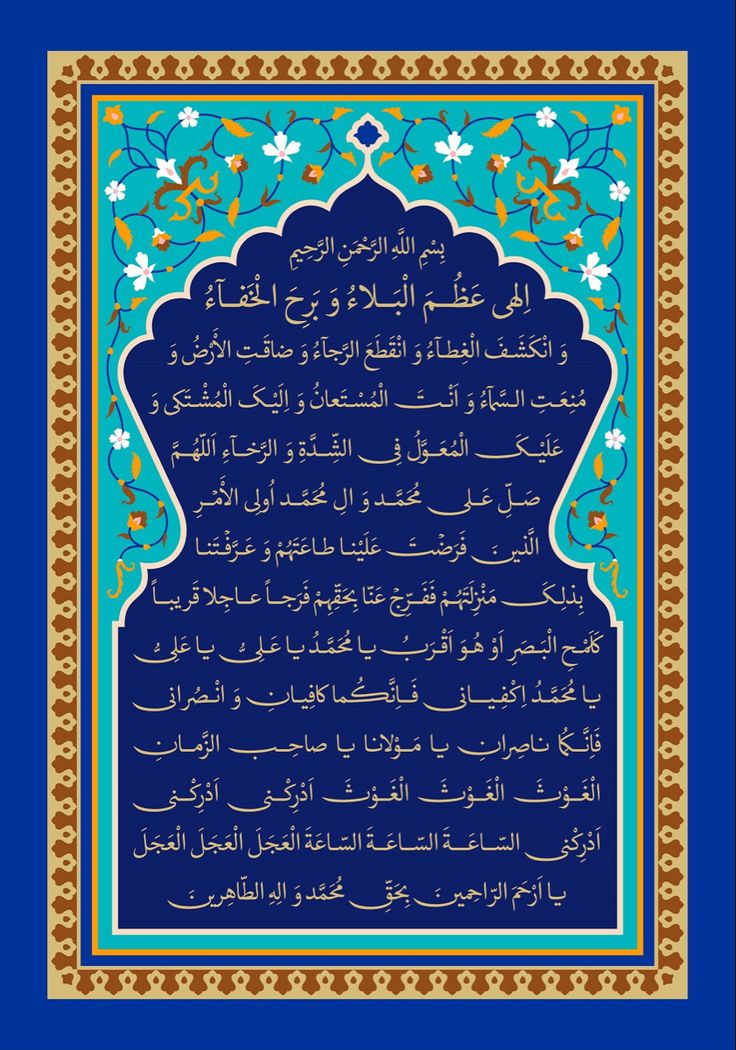 بِسْمِ اللَّهِ الرَّحْمَنِ الرَّحِيمِ
اِلهى عَظُمَ الْبَلاءُ وَ بَرِحَ الْخَفآءُ
وَ انْكَشَفَ الْغِطآءُ وَ انْقَطَعَ الرَّجآءُ وَ ضاقَتِ الأَرْضُ وَ
مُنِعَتِ السَّمآءُ وَ اَنْتَ الْمُسْتَعانُ وَ اِلَيْکَ الْمُشْتَکى وَ
عَلَيْکَ الْمُعَوَّلُ فِى الشِّدَّةِ وَ الرَّخآءِ اَللّهُمَّ
صَلِّ عَلى مُحَمَّد وَ الِ مُحَمَّد اُولِى الأَمْرِ
الَّذينَ فَرَضْتَ عَلَيْنا طاعَتَهُمْ وَ عَرَّفْتَنا
بِذلِکَ مَنْزِلَتَهُمْ فَفَرِّجْ عَنّا بِحَقِّهِمْ فَرَجاً عاجِلا قَريباً
کَلَمْحِ الْبَصَرِ اَوْ هُوَ اَقْرَبُ يا مُحَمَّدُ يا عَلِىُّ يا عَلِىُّ
يا مُحَمَّدُ اِکْفِيانى فَاِنَّکُما کافِيانِ وَ انْصُرانى
فَاِنَّکُما ناصِرانِ يا مَوْلانا يا صاحِبَ الزَّمانِ
الْغَوْثَ الْغَوْثَ الْغَوْثَ اَدْرِکْنى اَدْرِکْنى
اَدْرِکْنى السّاعَةَ السّاعَةَ السّاعَةَ الْعَجَلَ الْعَجَلَ الْعَجَلَ
يا اَرْحَمَ الرّاحِمينَ بِحَقِّ مُحَمَّد وَ الِهِ الطّاهِرينَ